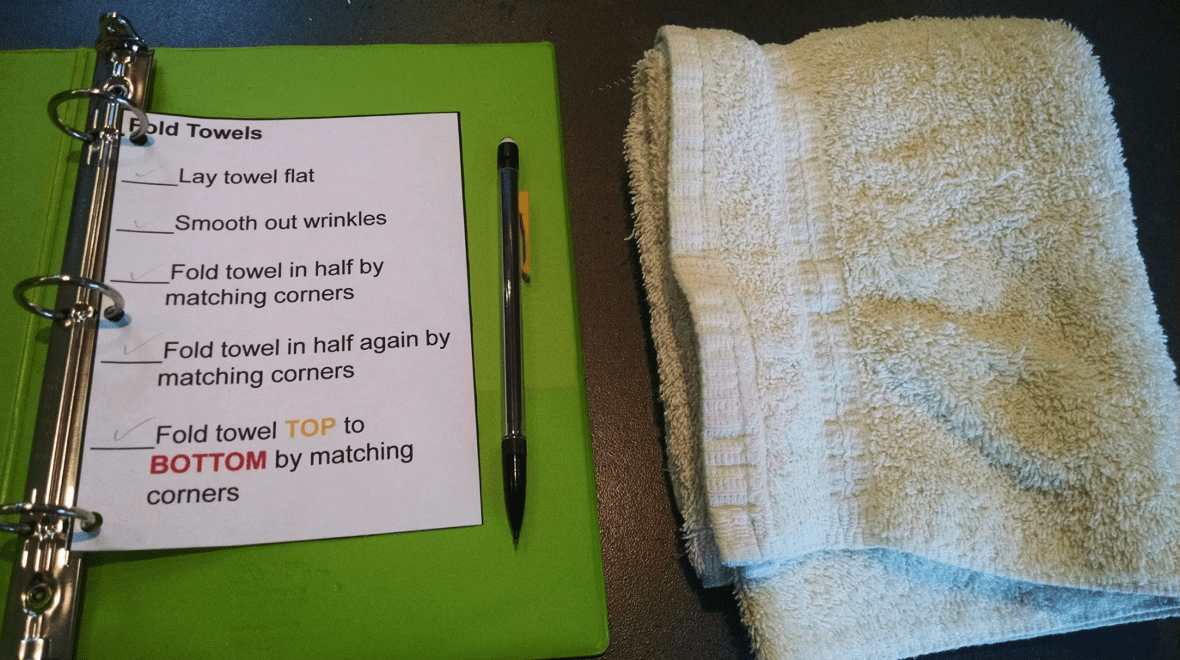 Fold Towels
____Lay towel flat
____Smooth out wrinkles
____Fold towel in half by
matching corners
____Fold towel in half again by
matching corners
____Fold towel TOP to
BOTTOM by matching
corners